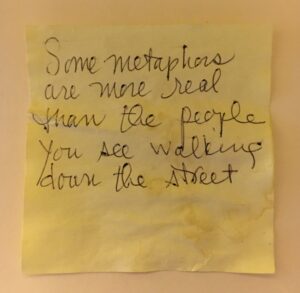 Some metaphors
are more real
than the people
you see walking
down the street